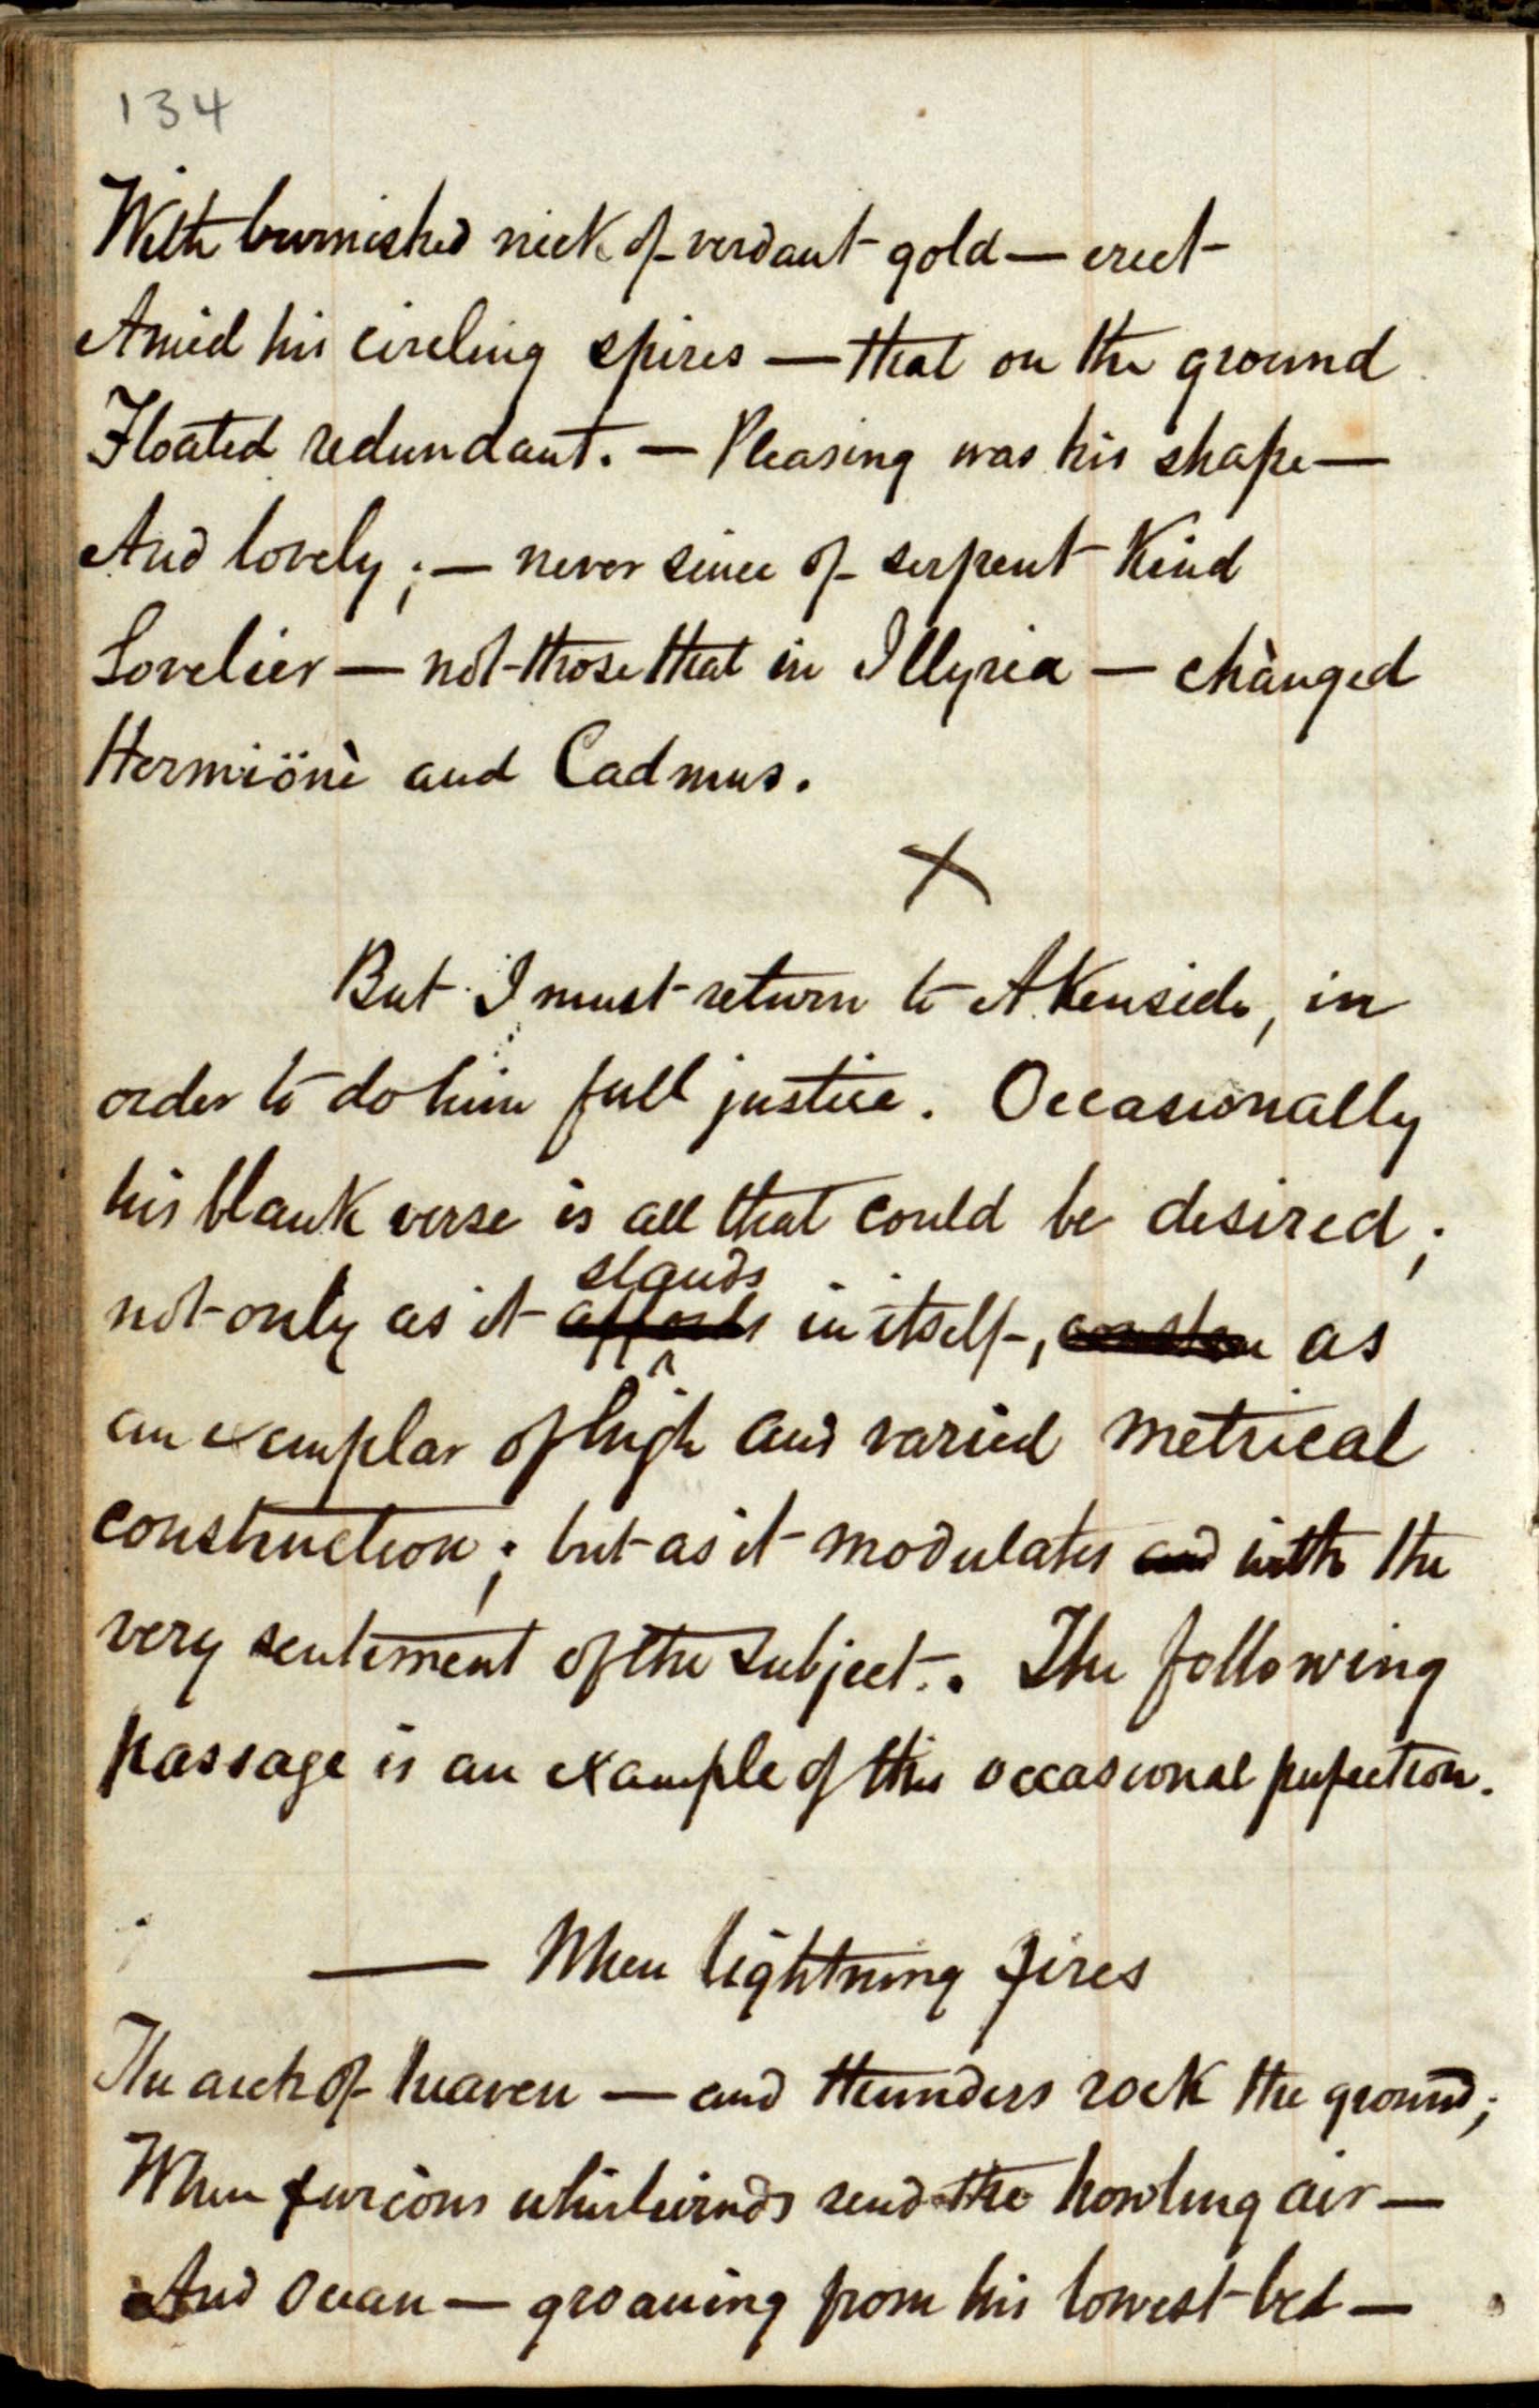 134
With burnished neck of verdant gold — erect
Amid his circling spires — that on the ground
Floated redundant. — Pleasing was his shape —
And lovely ; — never since of serpent kind
Lovelier — not those that in Illyria — chànged
Hermïönè and Cadmus.
X
But I must return to Akenside, in
order to do him full justice. Occasionally
his blank verse is all that could be desired ;
stands
not only as it affords in itself, as
an exemplar of high and varied metrical
construction ; but as it modulates and with the
very sentiment of the subject. The following
passage is an example of this occasional perfection.
— When lightning fires
The arch of heaven — and thunders rock the ground ;
When furious whirlwinds rend the howling air —
And Ocean — groaning from his lowest bed —